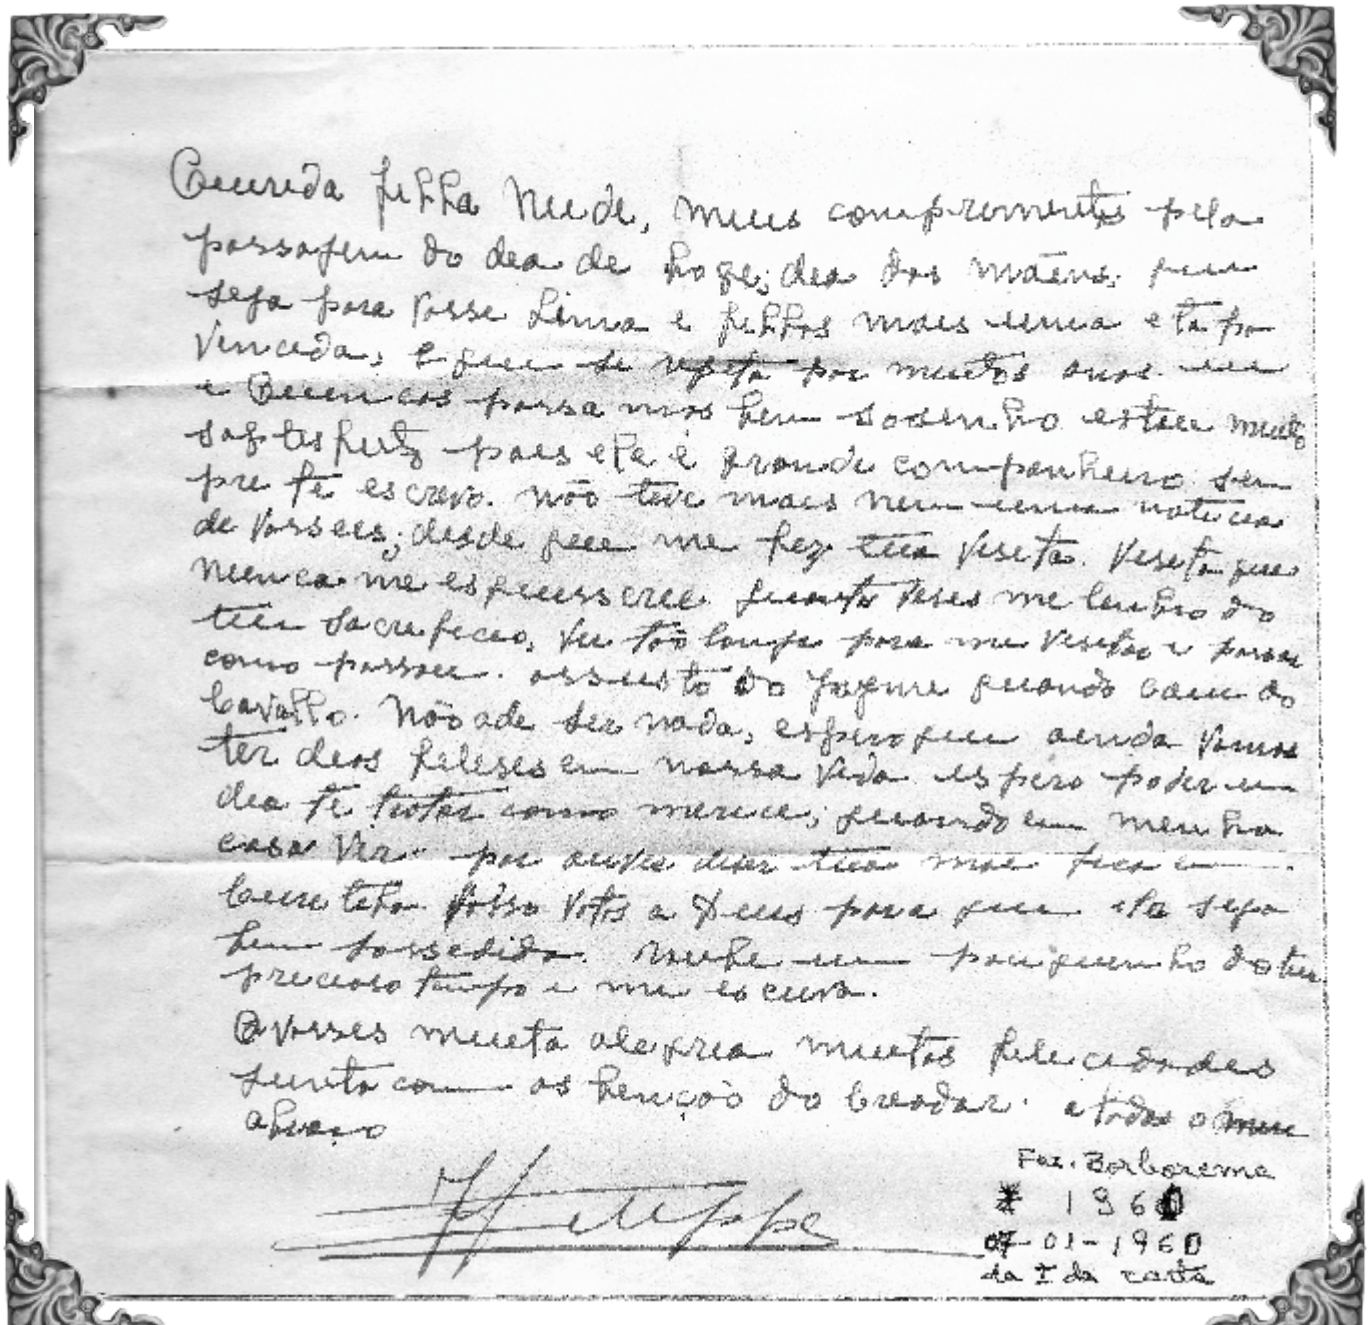 Querida filha Neide, meus comprimentos pela
passajem do dea de hoge; dea das mãens. que
seja para vosse Lima e filhos mais uma etapa
vencida, e que se repita por muitos anos. eu
e Quincas passa mos bem sosinho estou muito
satesfeito pois ele é grande companheiro sem
pre te escrevo. não tive mais nem uma noticia
de vosses; desde que me fez tua veseta. Veseta que
nunca me esquesserei quanta veses me lembro do
teu sacrefecio, vir tão longe para me visitar e passar
como passou. assusto do Jayme quando caeu do
cavallo. Não ade ser nada, espero que ainda vamos
ter deas feleses em nossa vida espero poder um
dia te tratar como merece, quando em menha
casa vir. por ouvir diser tua mãe fica em
Curitiba fasso votos a Deus para que ela seja
bem sossedida. roube um pouquenho do teu
precioso tempo e me escreva.
A vosses mueta alegria muetas felicidades
junto com as bençoõ do Creador. a todos o meu
abraço
Felippe
Faz. Borborema
1960
07-01-1960
da I da carta